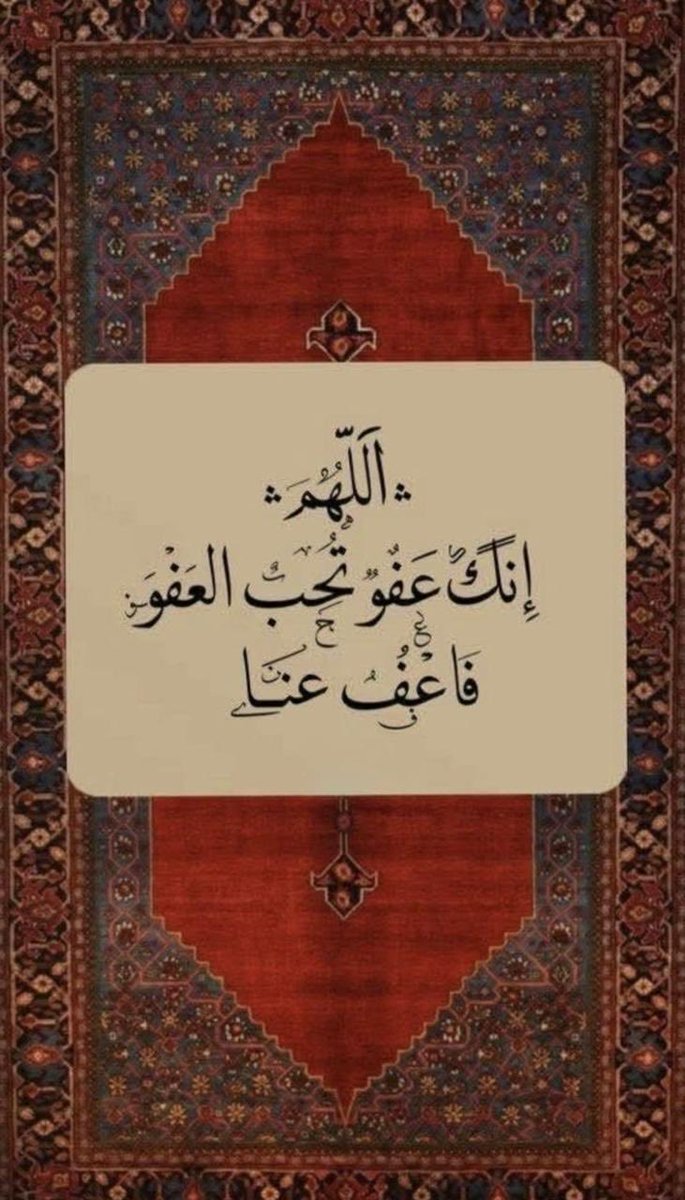 اَللّهُمَ
إِنكَ عَفُوٌ تُحِبُ العَفْوَ
فَاعْفُ عنَا